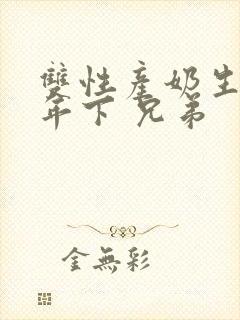 雙性產奶生
年下 兄弟
金無彩